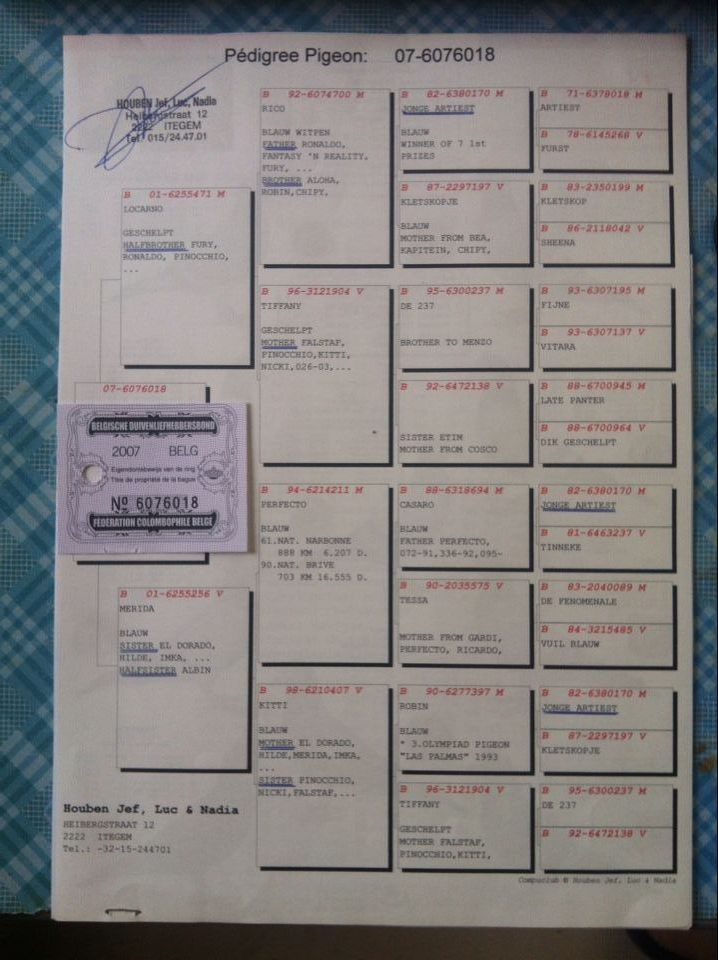 Pédigree Pigeon: 07-6076018
HOUBEN Jef, Luc, Nadia
Heibergstraat 12
2222 ITEGEM
Tel. 015/24.47.01
B 01-6255471 M
LOCARNO
GESCHELPT
HALFBROTHER FURY,
RONALDO, PINOCCHIO,
...
07-6076018
BELGISCHE DUIVENLIEFHEBBERSBOND
2007 BELG
Eigendomsbewijs van de ring
Titre de propriété de la bague
Nº 6076018
FÉDÉRATION COLOMBOPHILE BELGE
B 01-6255256 V
MERIDA
BLAUW
SISTER EL DORADO,
HILDE, IMKA, ...
HALFSISTER ALBIN
B 92-6074700 M
RICO
BLAUW WITPEN
FATHER RONALDO,
FANTASY 'N REALITY,
FURY, ...
BROTHER ALOHA,
ROBIN,CHIPY,
B 96-3121904 V
TIFFANY
GESCHELPT
MOTHER FALSTAF,
PINOCCHIO,KITTI,
NICKI,026-03,...
B 94-6214211 M
PERFECTO
BLAUW
61.NAT. NARBONNE
888 KM 6.207 D.
90.NAT. BRIVE
703 KM 16.555 D.
B 98-6210407 V
KITTI
BLAUW
MOTHER EL DORADO,
HILDE,MERIDA,IMKA,
...
SISTER PINOCCHIO,
NICKI,FALSTAF,...
B 82-6380170 M
JONGE ARTIEST
BLAUW
WINNER OF 7 1st
PRIZES
B 87-2297197 V
KLETSKOPJE
BLAUW
MOTHER FROM BEA,
KAPITEIN, CHIPY,
B 95-6300237 M
DE 237
BROTHER TO MENZO
B 92-6472138 V
SISTER ETIM
MOTHER FROM COSCO
B 88-6318694 M
CASARO
BLAUW
FATHER PERFECTO,
072-91,336-92,095-
B 90-2035575 V
TESSA
MOTHER FROM GARDI,
PERFECTO, RICARDO,
B 90-6277397 M
ROBIN
BLAUW
* 3.OLYMPIAD PIGEON
"LAS PALMAS" 1993
B 96-3121904 V
TIFFANY
GESCHELPT
MOTHER FALSTAF,
PINOCCHIO,KITTI,
B 71-6378018 M
ARTIEST
B 78-6145268 V
FURST
B 83-2350199 M
KLETSKOP
B 86-2118042 V
SHEENA
B 93-6307195 M
FIJNE
B 93-6307137 V
VITARA
B 88-6700945 M
LATE PANTER
B 88-6700964 V
DIK GESCHELPT
B 82-6380170 M
JONGE ARTIEST
B 81-6463237 V
TINNEKE
B 83-2040089 M
DE FENOMENALE
B 84-3215485 V
VUIL BLAUW
B 82-6380170 M
JONGE ARTIEST
B 87-2297197 V
KLETSKOPJE
B 95-6300237 M
DE 237
B 92-6472138 V
Houben Jef, Luc & Nadia
HEIBERGSTRAAT 12
2222 ITEGEM
Tel.: -32-15-244701
Compuclub © Houben Jef, Luc & Nadia